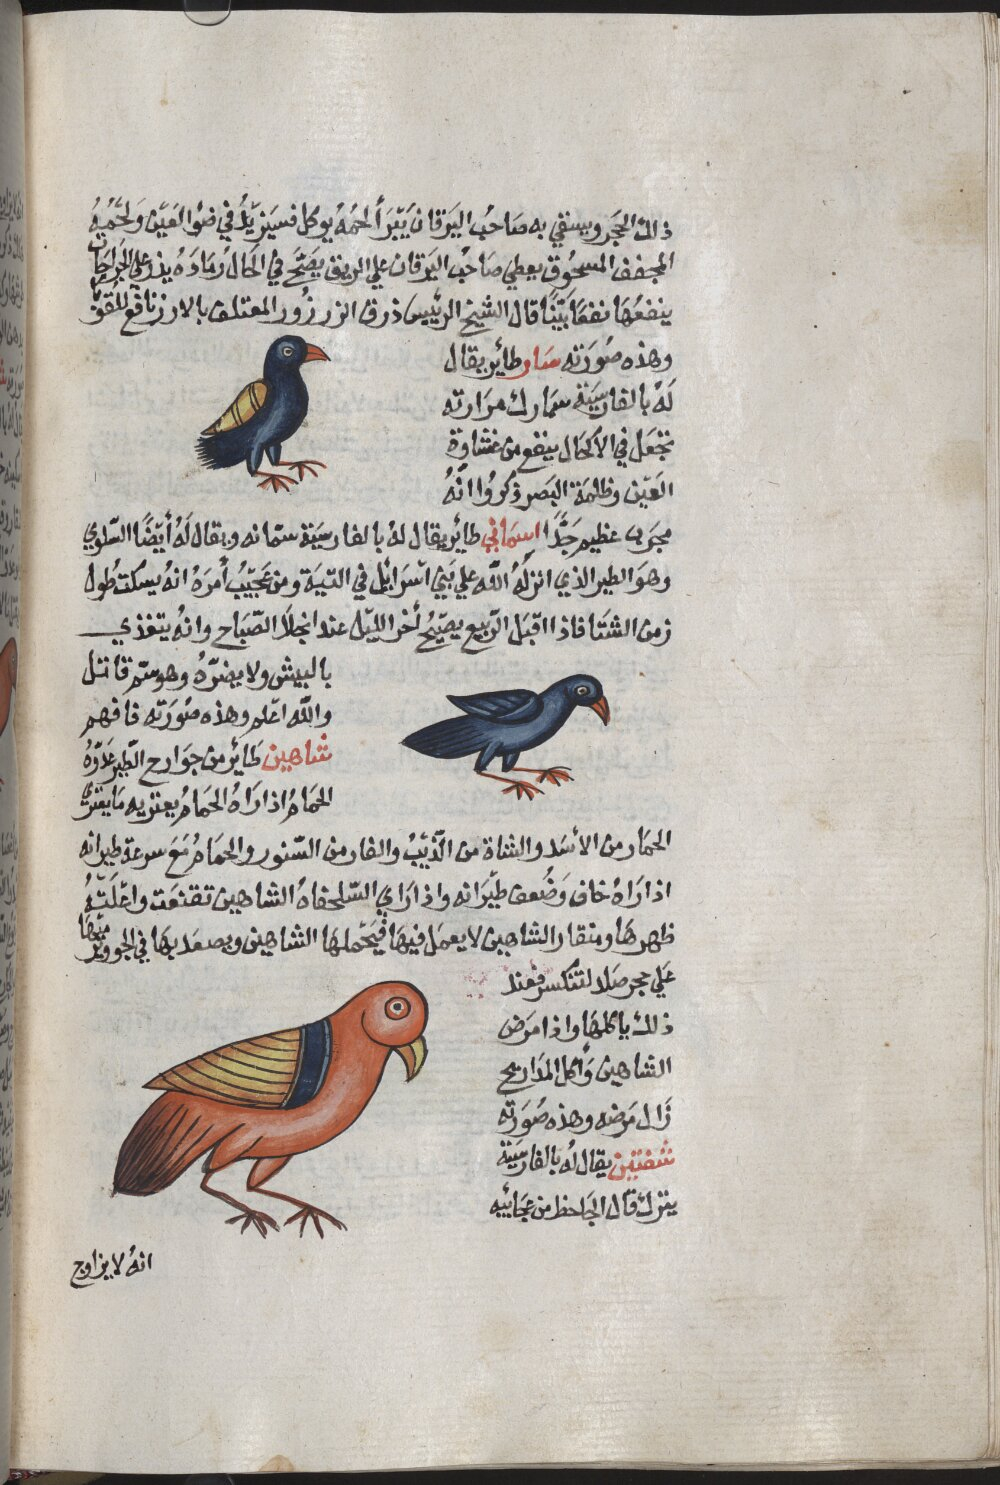 ذلك الحجر ويسقي به صاحب اليرقان يَبْرَأ لحمه يوكل فسيزيد في ضوا العين ولحمه
المجفف المسحوق يعطي صاحب اليرقان علي الريق يصَحّ في الحال رماده يذر علي الجراحات
ينفعها نفعًا بيّنًا قال الشيخ الرئيس ذرق الزرزور المعتلف بالارز نافع للقوَّبا
وهذه صورته سار طائر يقال
له بالفارسية سمارك مرارته
تجعل في الاكحال ينفع من غشاوة
العين وظلمة البصر ذكروا انه
مجرب عظيم جدًّا اسماني طائر يقال له بالفارسية سمّانه ويقال له أيضًا السّلوي
وهو الطير الذي انزله الله علي بني اسرايل في التية ومن عجيب أمره انه يسكت طول
زمن الشتا فاذا اقبل الربيع يصيح أخر الليل عند انجلا الصّباح وانه يتغذي
بالبيش ولا يضرّه وهو سمّ قاتل
والله اعلم وهذه صورته فافهم
شاهين طائر من جوارح الطير عدوّه
الحمام اذا راه الحمام يعتريه ما يعتري
الحمار من الأسد والشاة من الذئب والفار من السّنور والحمام مع سرعة طيرانه
اذا راه خاف وضعف طيرانه واذا راي السلحفاة الشاهين تقنعت واعلته
ظهرها ومنقار الشاهين لا يعمل فيها فيحملها الشاهين ويصعد بها في الجو ويرميها
علي حجر صلد لتنكسر فعند
ذلك ياكلها واذا مرض
الشاهين وأكل المداريح
زال مرضه وهذه صورته
شفنين يقال له بالفارسية
يترك قال الجاحظ من عجائبه
انه لا يزاوج